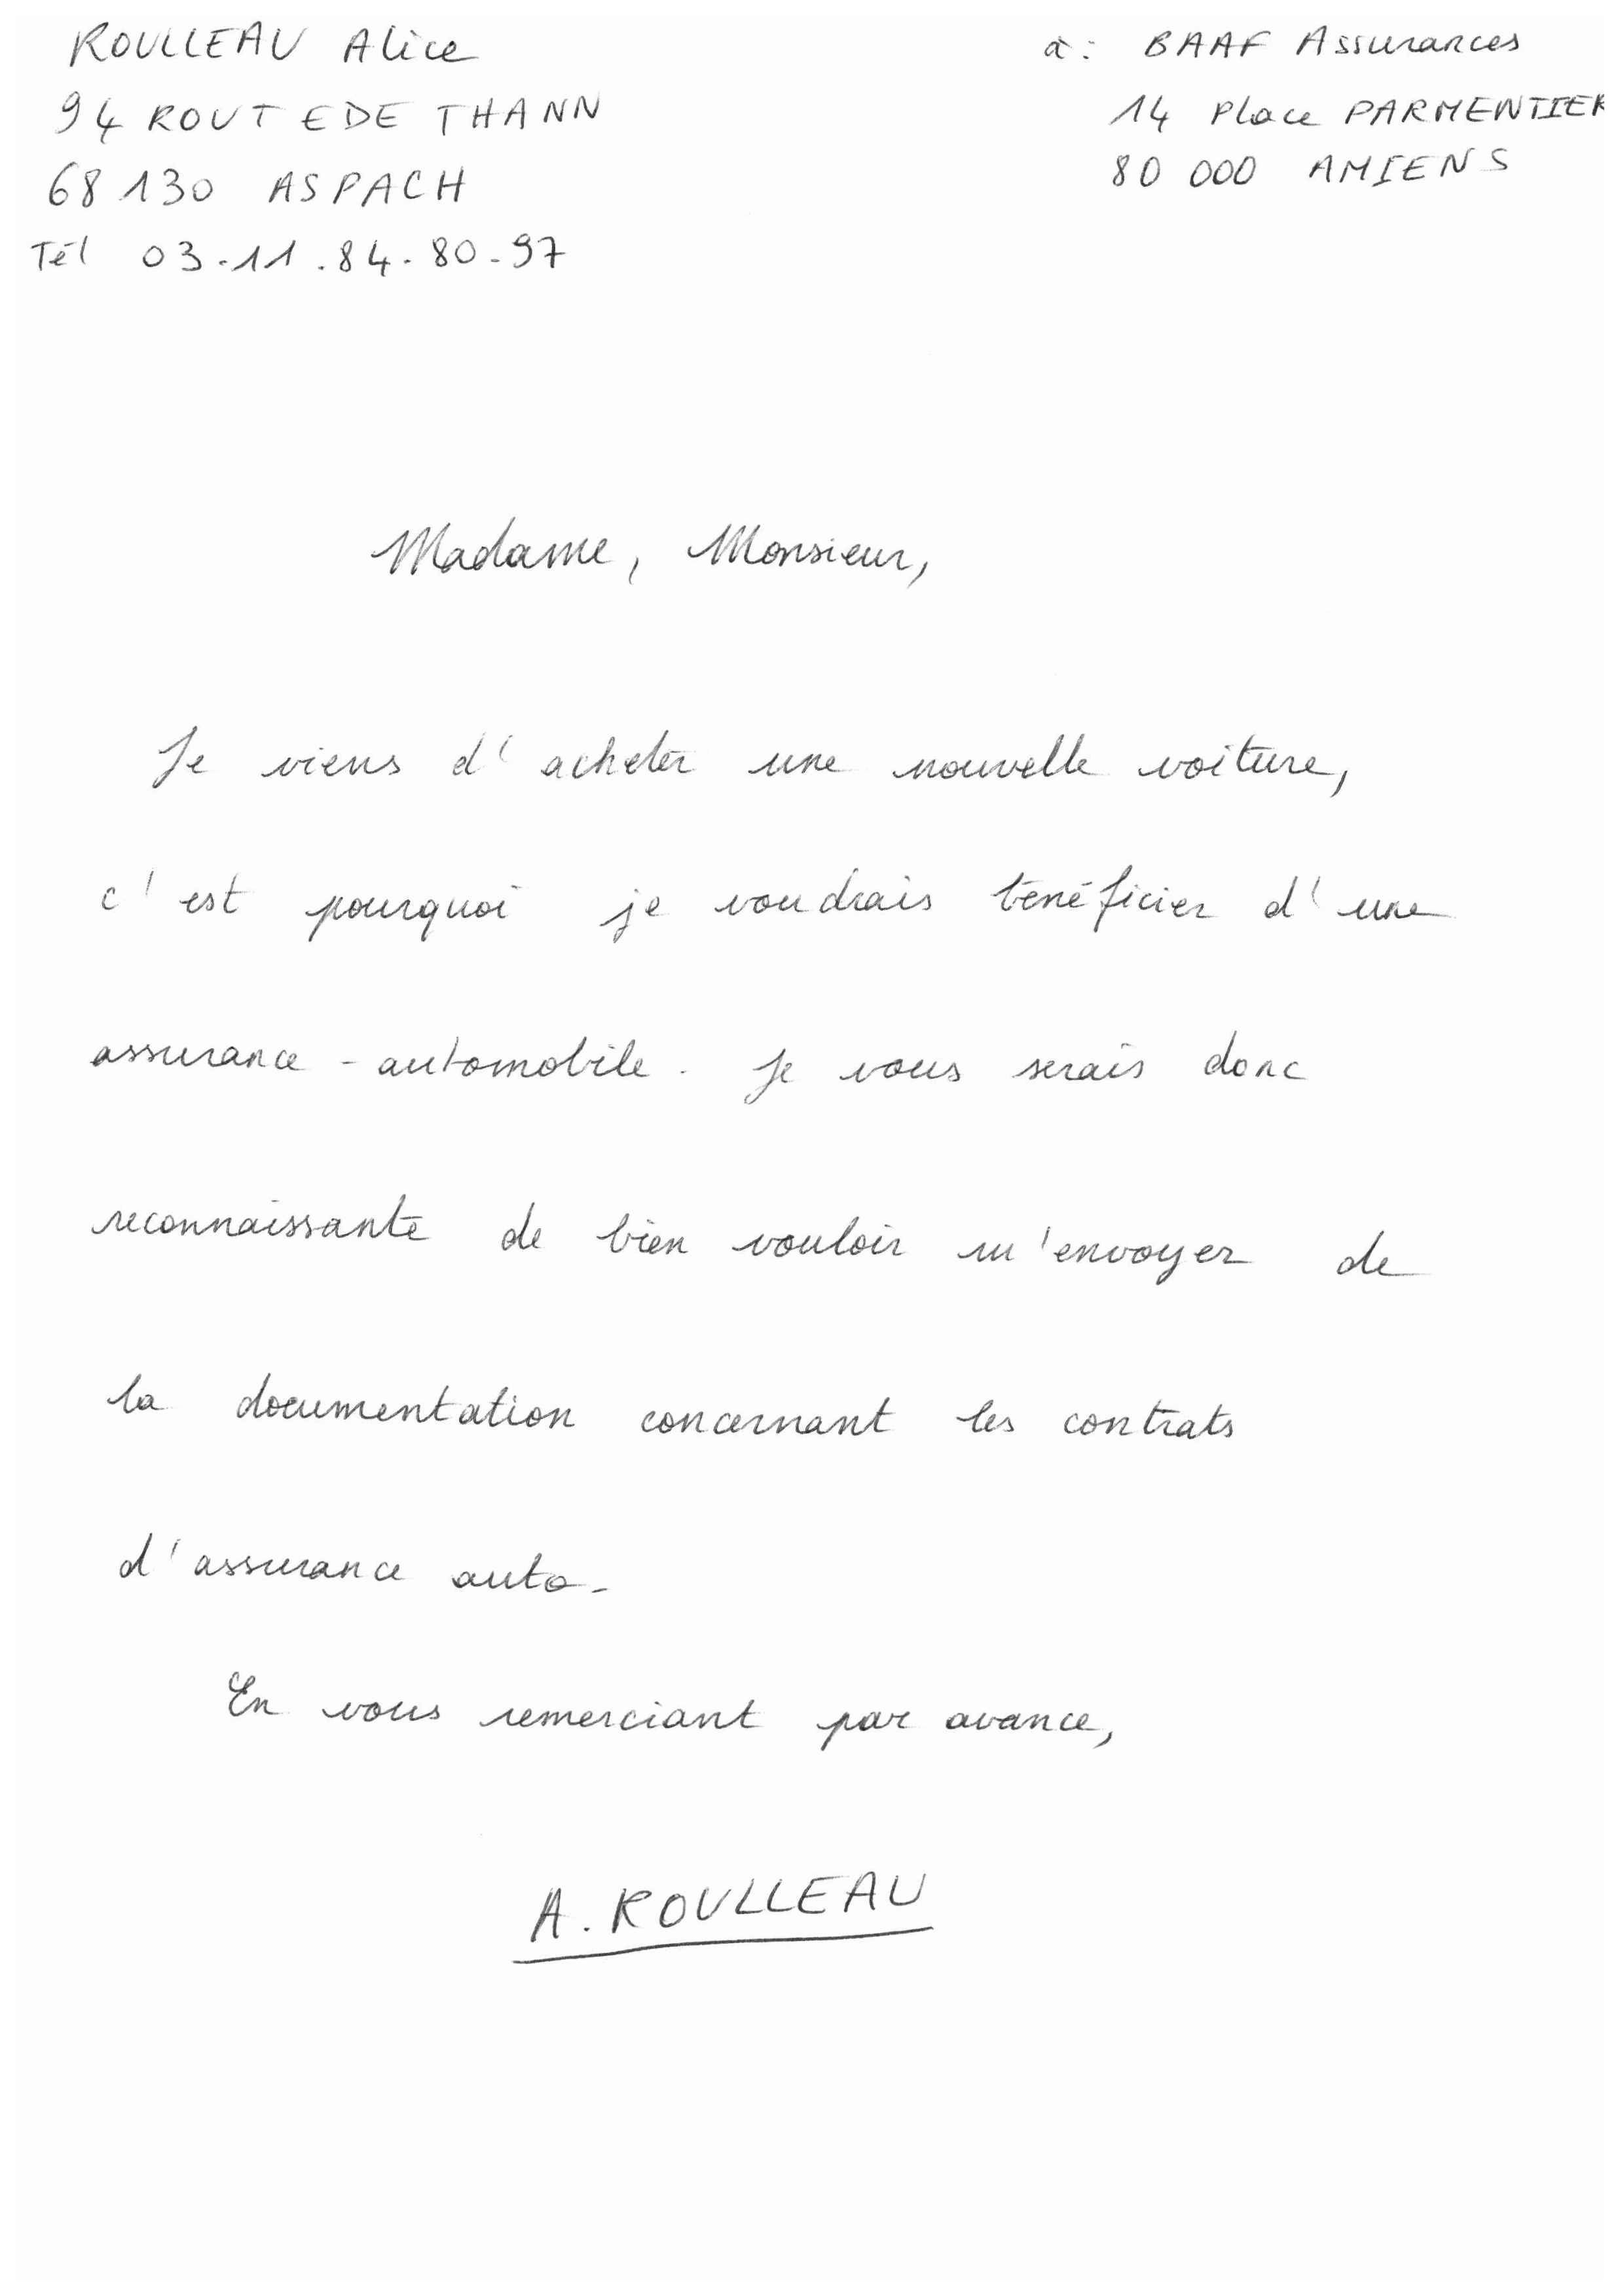 ROULLEAU Alice
94 ROUTEDE THANN
68 130 ASPACH
Tél 03.11.84.80.97
à: BAAF Assurances
14 Place PARMENTIER
80 000 AMIENS
Madame, Monsieur,
Je viens d'acheter une nouvelle voiture,
c'est pourquoi je voudrais bénéficier d'une
assurance-automobile. Je vous serais donc
reconnaissante de bien vouloir m'envoyer de
la documentation concernant les contrats
d'assurance auto.
En vous remerciant par avance,
A. ROULLEAU